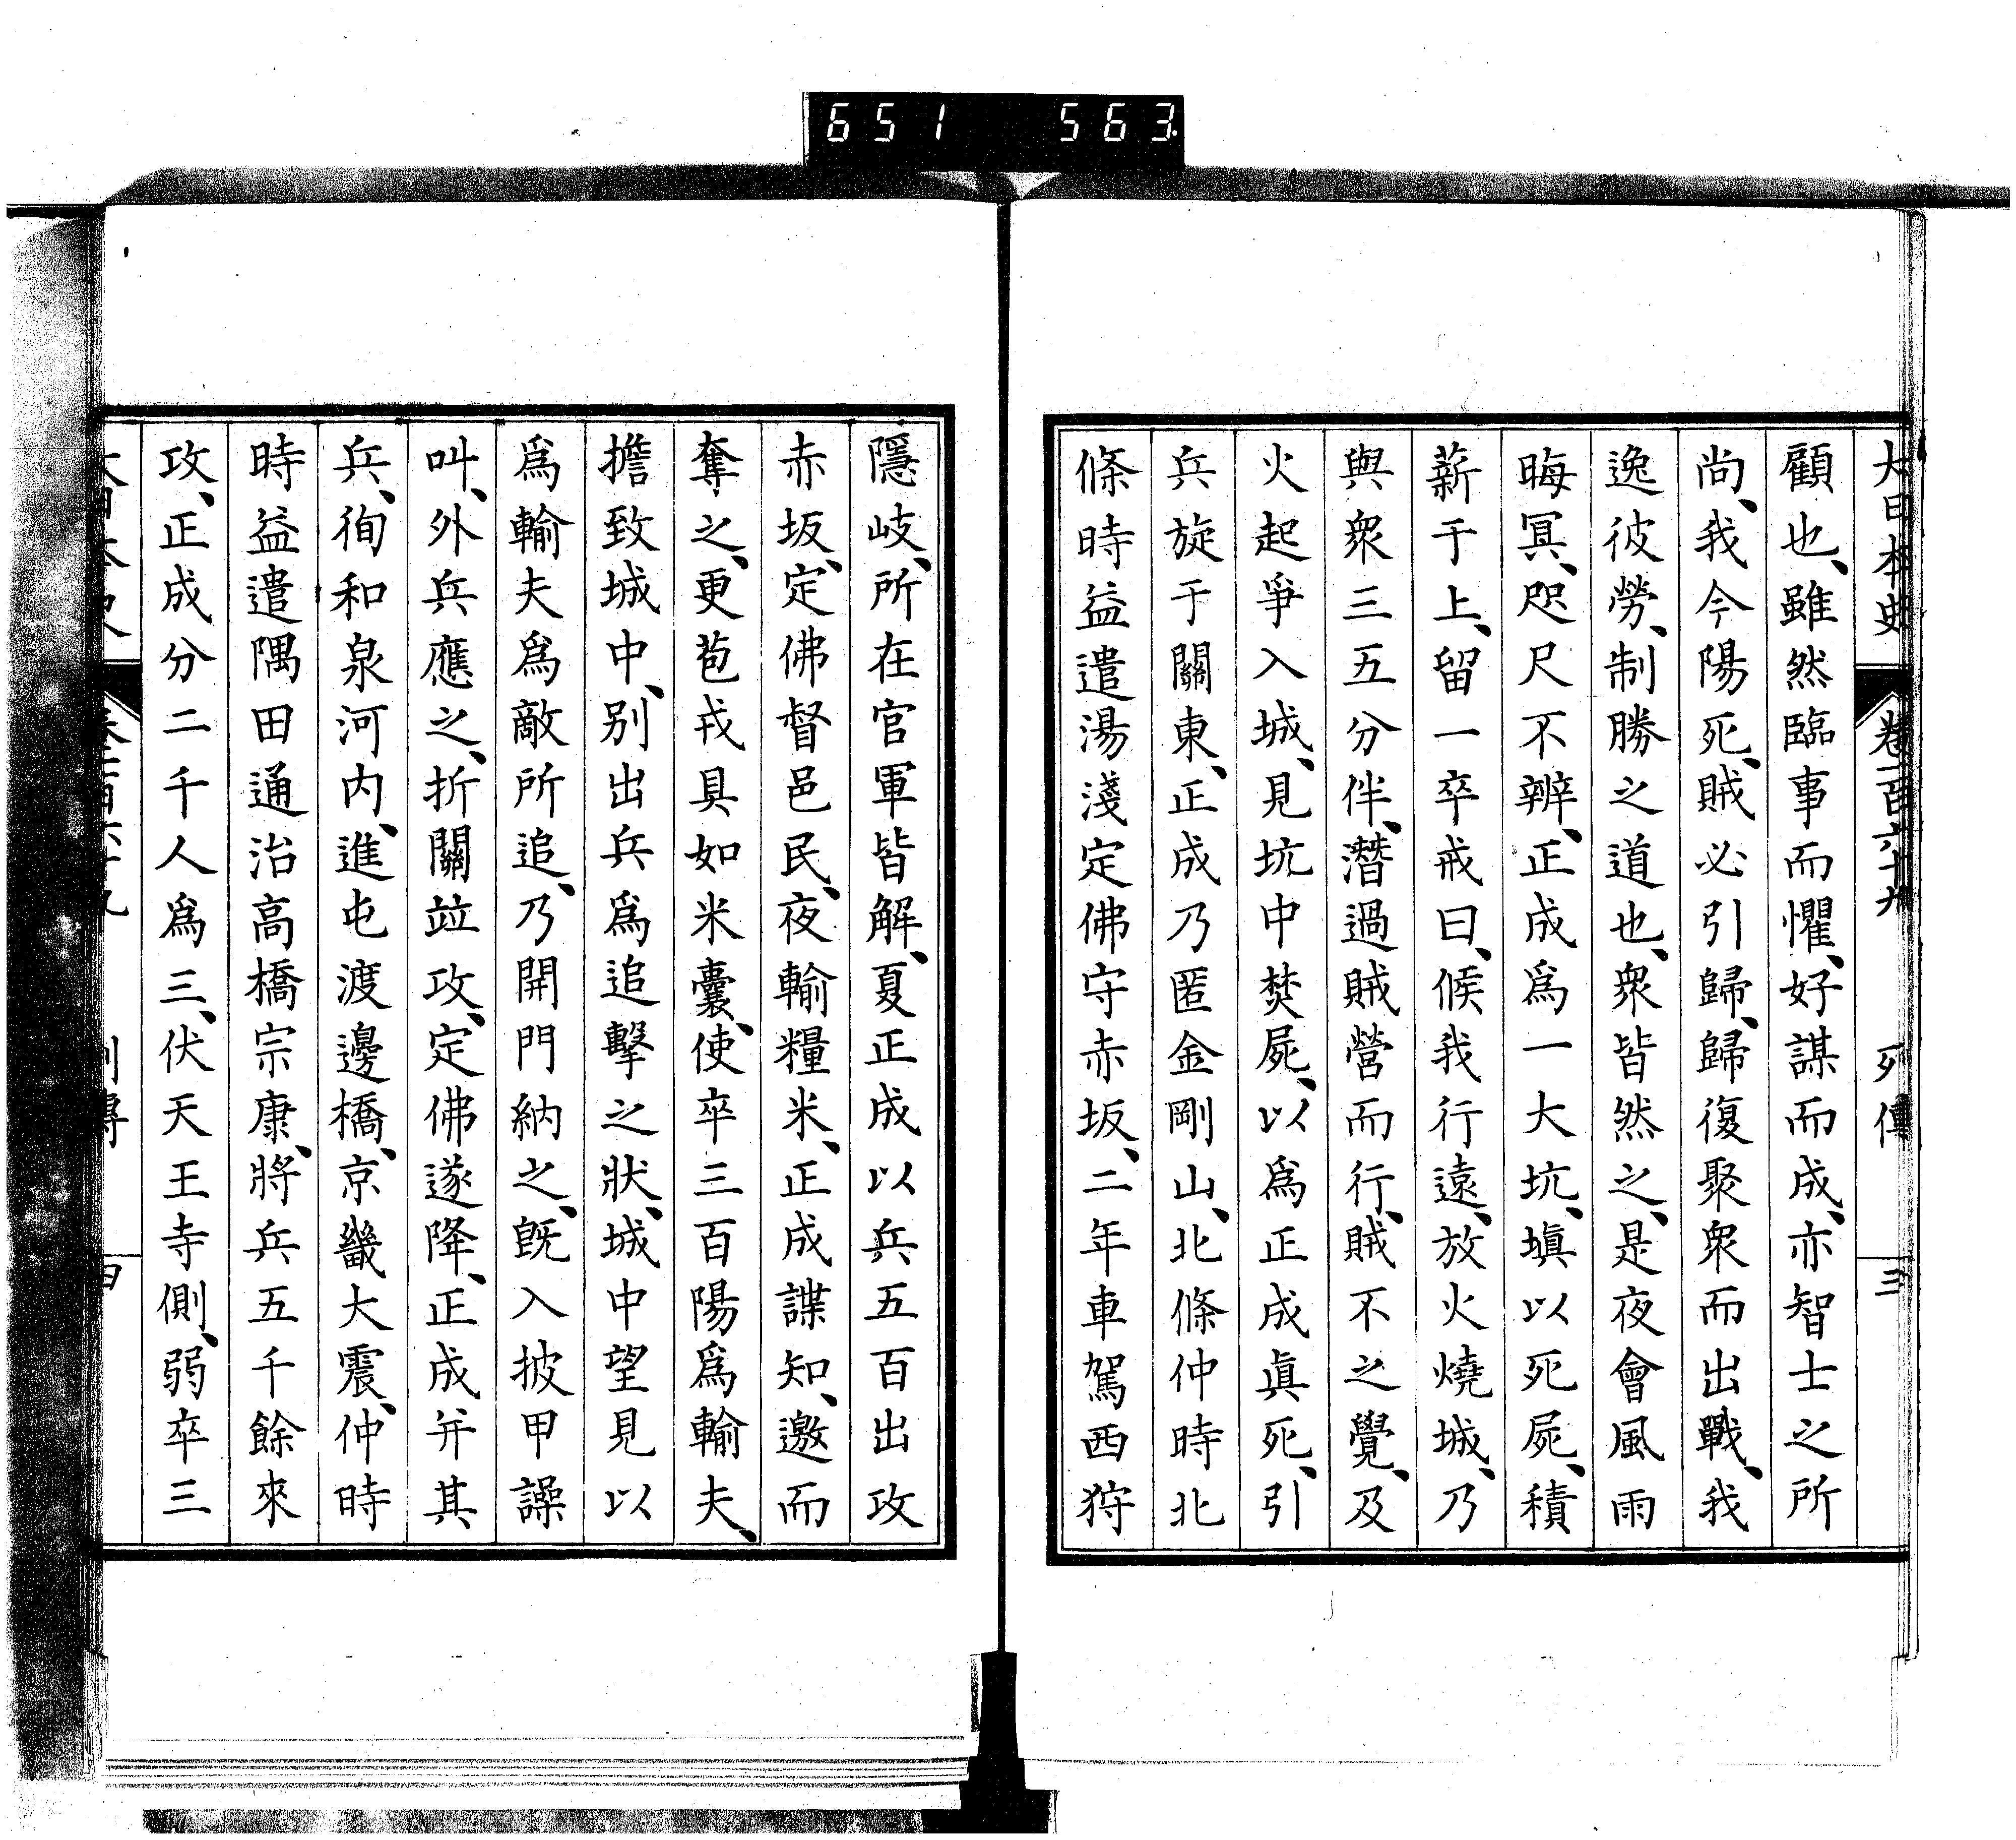 651 563
大日本史 卷一百六十九 列傳 三
顧也、雖然臨事而懼、好謀而成、亦智士之所
尚、我今陽死、賊必引歸、歸復聚衆而出戰、我
逸彼勞、制勝之道也、衆皆然之、是夜會風雨
晦冥、咫尺不辨、正成爲一大坑、塡以死屍、積
薪于上、留一卒戒曰、候我行遠、放火燒城、乃
與衆三五分伴、潛過賊營而行、賊不之覺、及
火起爭入城、見坑中焚屍、以爲正成眞死、引
兵旋于關東、正成乃匿金剛山、北條仲時北
條時益遣湯淺定佛守赤坂、二年車駕西狩
隱岐、所在官軍皆解、夏正成以兵五百出攻
赤坂、定佛督邑民、夜輸糧米、正成諜知、邀而
奪之、更苞戎具如米囊、使卒三百陽爲輸夫、
擔致城中、別出兵爲追擊之狀、城中望見以
爲輸夫爲敵所追、乃開門納之、既入披甲譟
叫、外兵應之、折關竝攻、定佛遂降、正成并其
兵、徇和泉河内、進屯渡邊橋、京畿大震、仲時
時益遣隅田通治高橋宗康、將兵五千餘來
攻、正成分二千人爲三、伏天王寺側、弱卒三